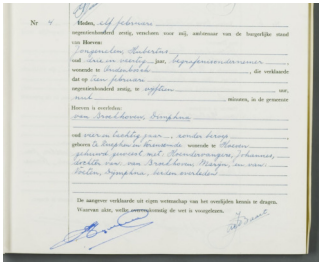 Nr 4 Heden, elf februari
negentienhonderd zestig, verscheen voor mij, ambtenaar van de burgerlijke stand
van Hoeven:
Jongenelen Hubertus
oud drie en veertig jaar, begrafenisondernemer
wonende te Oudenbosch, die verklaarde
dat op tien februari
negentienhonderd zestig, te vijftien uur,
minuten, in de gemeente
Hoeven is overleden:
van Broekhoven, Dimphna
oud vier en tachtig jaar, zonder beroep
geboren te wonende te Hoeven
gehuwd geweest met Johannes,
dochter van: van Broekhoven, en van
beiden overleden
De aangever verklaarde uit eigen wetenschap van het overlijden kennis te dragen.
Waarvan akte, welke overeenkomstig de wet is voorgelezen.